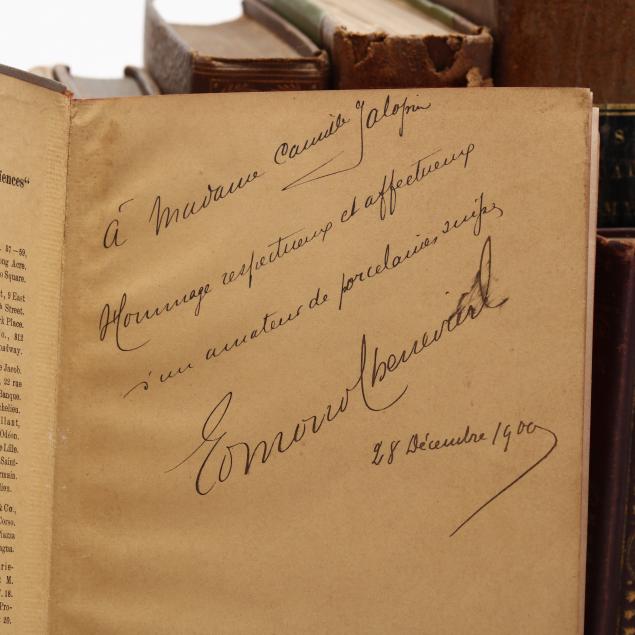 iences"
57–59,
ng Acre.
o Square.
t, 9 East
Street.
rk Place.
o., 812
oadway.
Jacob.
22 rue
Banque.
chelieu.
illant,
Odéon.
Lille.
Saint-
rmain.
lieu.
& Co.,
Corso.
Piazza
agna.
rie-
M.
18.
Pro-
20.
À Madame Camille Jalopin
Hommage respectueux et affectueux
d'un amateur de porcelaines
Edmond Chenevard
28 Décembre 1900